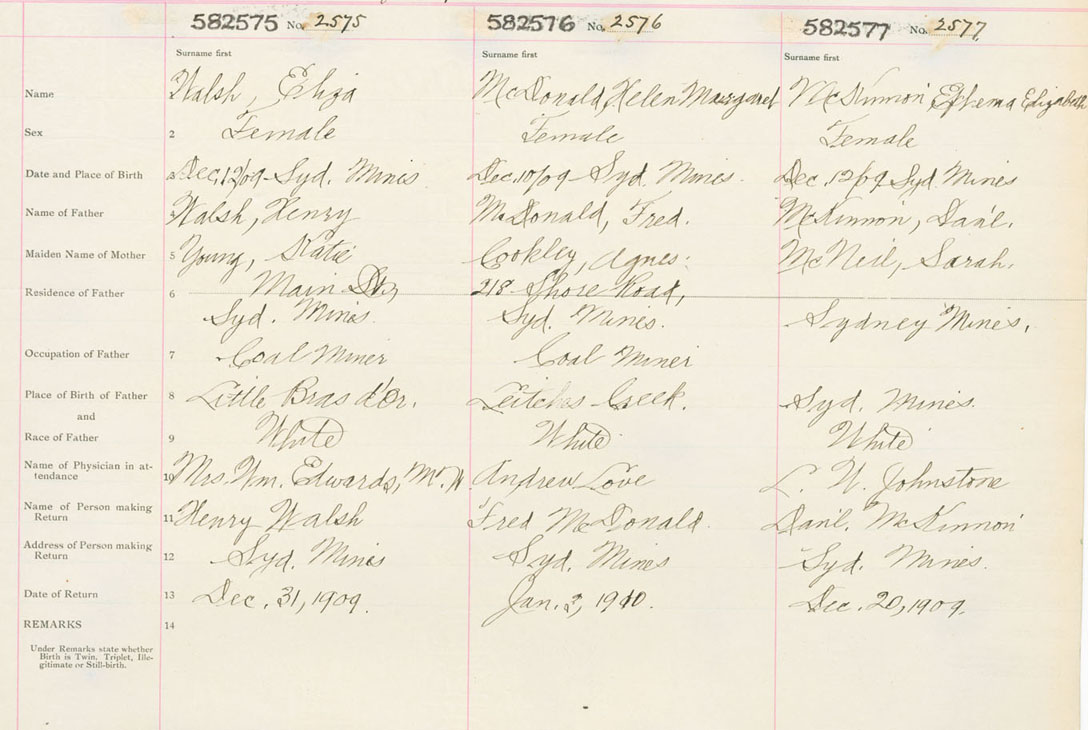 582575 No. 2575 582576 No. 2576 582577 No. 2577
Surname first Surname first Surname first
Name 1 Walsh, Eliza McDonald, Helen Margaret McKinnon Ephema Elizabeth
Sex 2 Female Female Female
Date and Place of Birth 3 Dec. 12/09 Syd. Mines Dec. 10/09 Syd. Mines. Dec. 12/09 Syd. Mines
Name of Father Walsh, Henry McDonald, Fred. McKinnon, Danl.
Maiden Name of Mother 5 Young, Katie Cookley, Agnes. McNeil, Sarah.
Main St., 218 Shore Road,
Residence of Father 6
Syd. Mines. Syd. Mines. Sydney Mines.
Occupation of Father 7 Coal Miner Coal Miner
Place of Birth of Father 8 Little Bras d'Or. Leitches Creek. Syd. Mines.
and
Race of Father 9 White White White
Name of Physician in at-
tendance 10 Mrs. Wm. Edwards, M. W. Andrew Love L. W. Johnstone
Name of Person making
Return 11 Henry Walsh Fred McDonald. Danl. McKinnon
Address of Person making
Return 12 Syd. Mines Syd. Mines Syd. Mines.
Date of Return 13 Dec. 31, 1909. Jan. 3, 1910. Dec. 20, 1909.
REMARKS 14
Under Remarks state whether
Birth is Twin. Triplet, Ille-
gitimate or Still-birth.